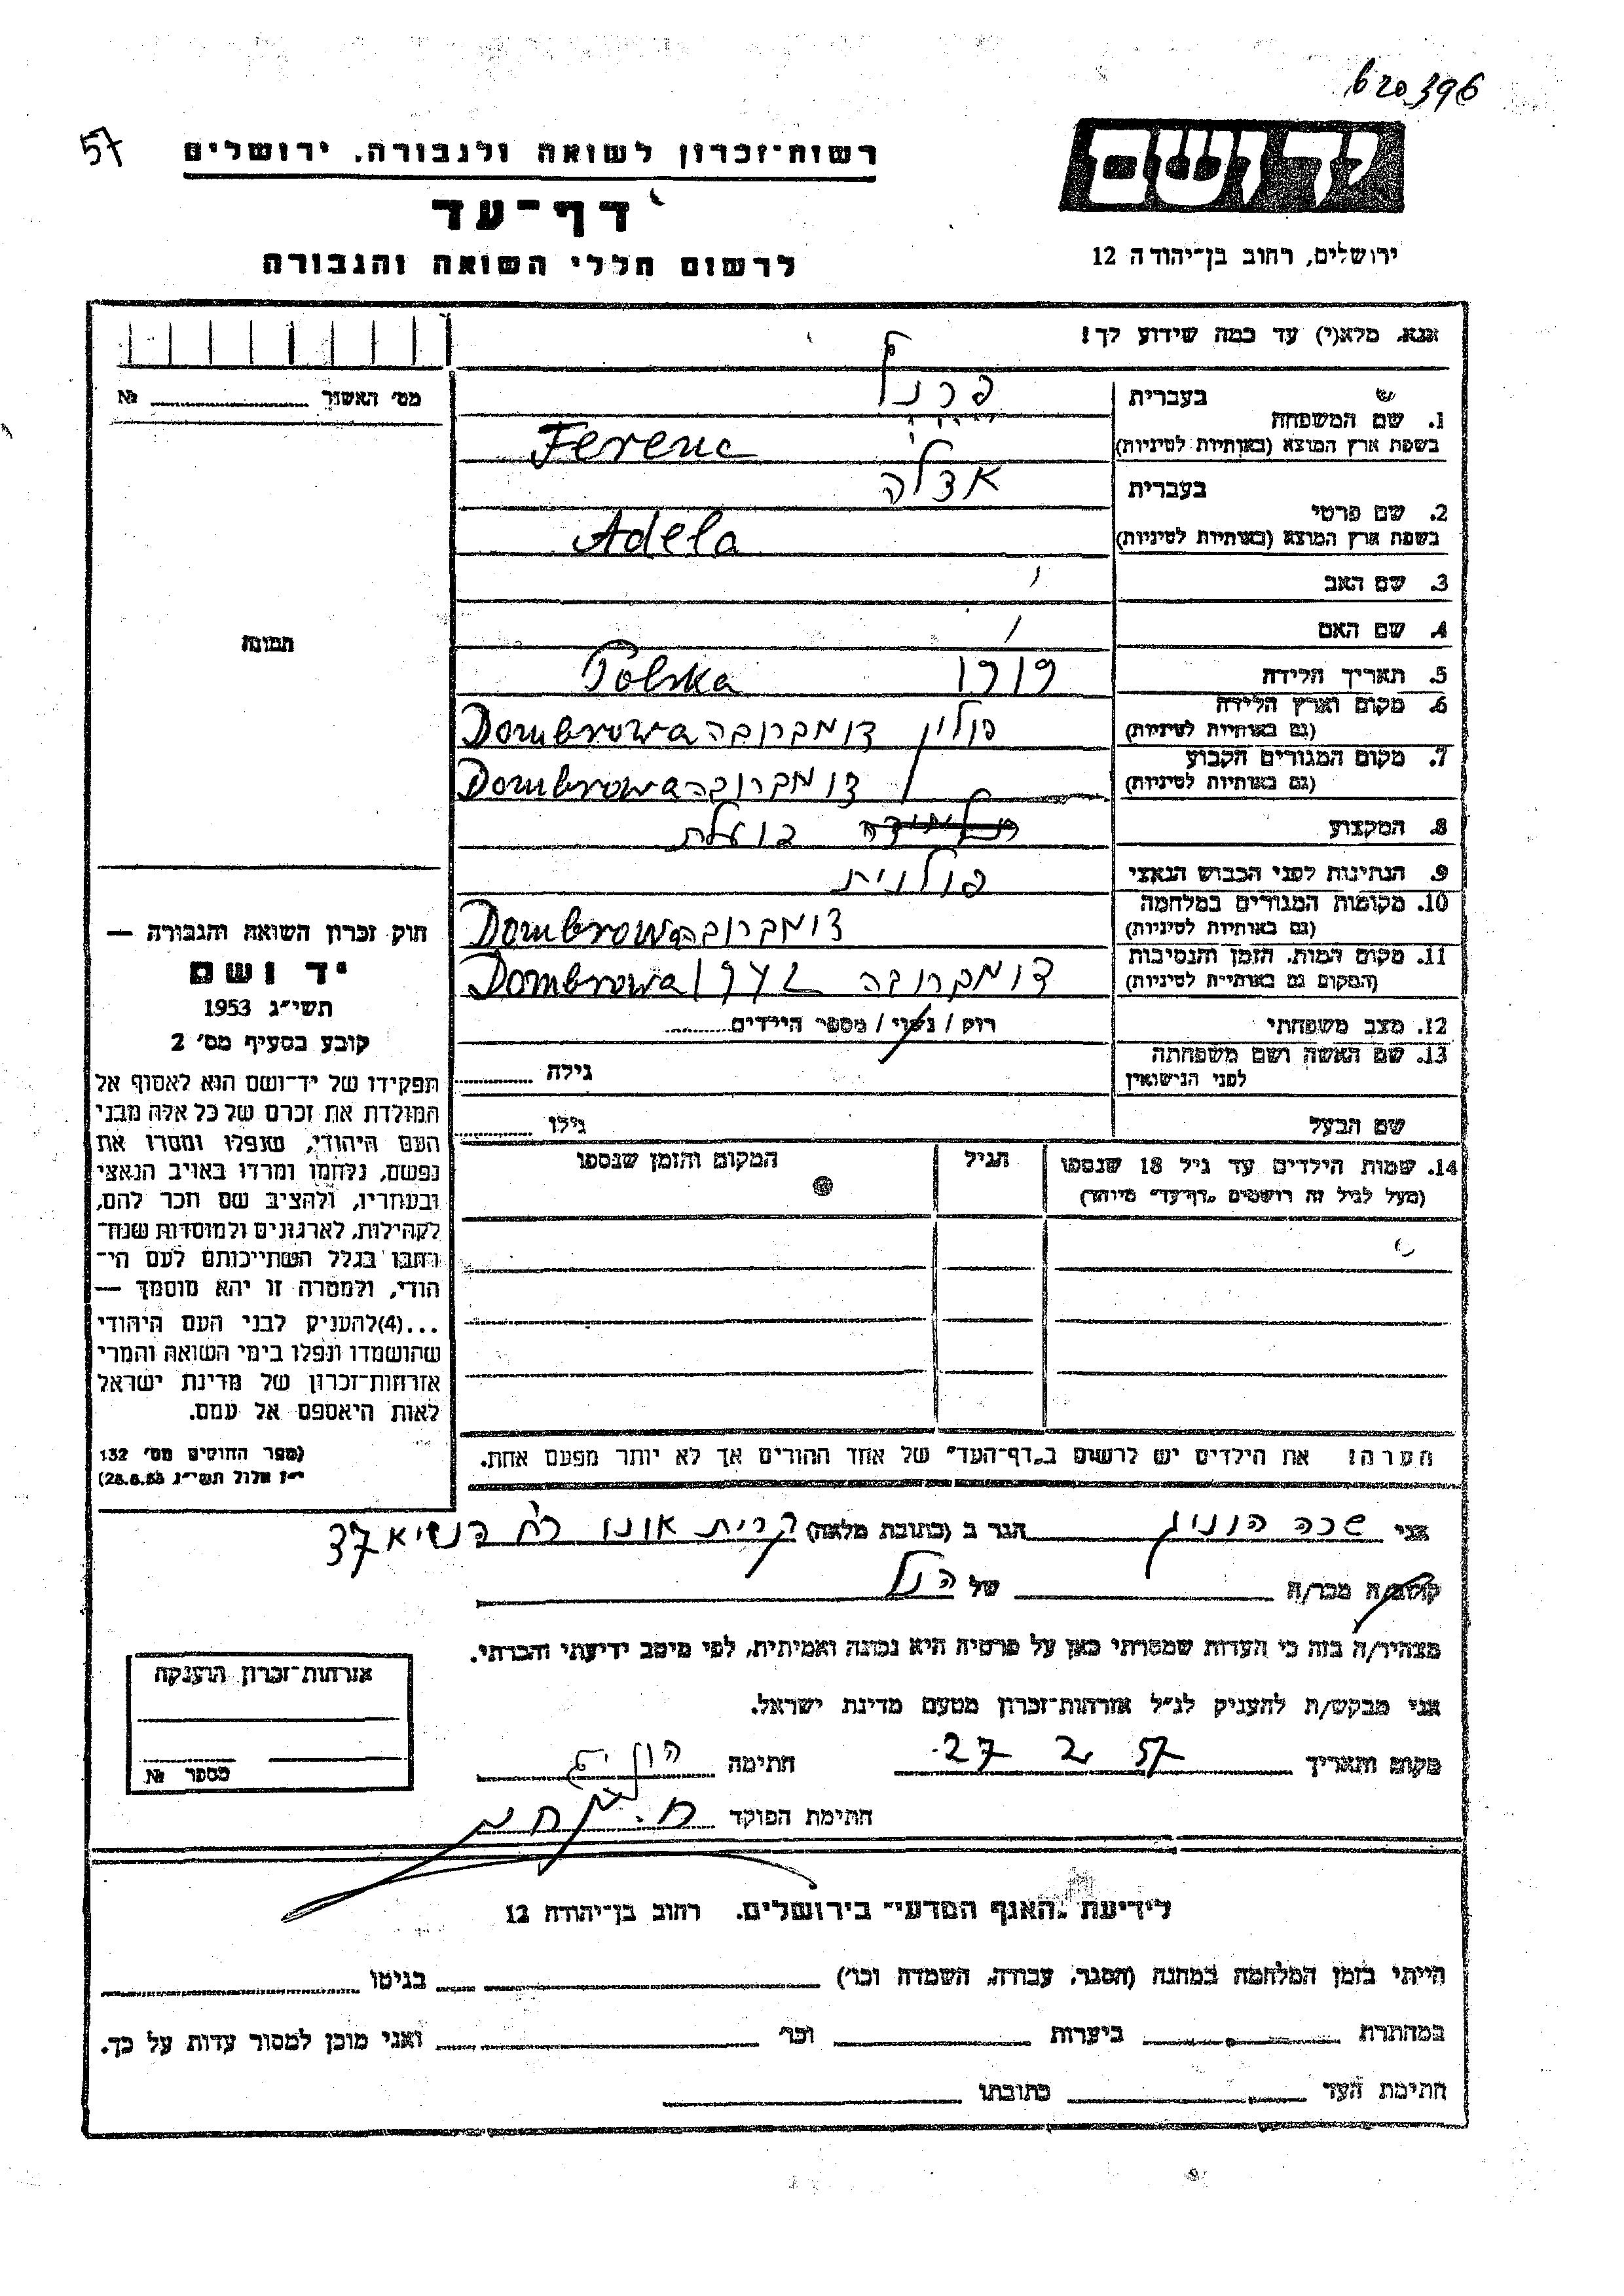 620396
57
רשות־זכרון לשואה ולגבורה. ירושלים
יד ושם
דף־עד
ירושלים, רחוב בן־יהודה 12
לרשום חללי השואה והגבורה
אנא, מלא(י) עד כמה שידוע לך!
מס' האשור № 
בעברית
1. שם המשפחה
בשפת ארץ המוצא (באותיות לטיניות) Ferenc
בעברית אדלה
2. שם פרטי
בשפת ארץ המוצא (באותיות לטיניות) Adela
3. שם האב
4. שם האם
תמונה
5. תאריך הלידה 1919 Polska
6. מקום וארץ הלידה
(גם באותיות לטיניות) פולין דומברובה Dombrowa
7. מקום המגורים הקבוע
(גם באותיות לטיניות) דומברובה Dombrowa
8. המקצוע פועלת
9. הנתינות לפני הכבוש הנאצי פולנית
10. מקומות המגורים במלחמה
(גם באותיות לטיניות) דומברובה Dombrowa
11. מקום המות, הזמן והנסיבות
(המקום גם באותיות לטיניות) דומברובה 1942 Dombrowa
12. מצב משפחתי רווק / נשוי / מספר הילדים
13. שם האשה ושם משפחתה
לפני הנישואין גילה
שם הבעל גילו
14. שמות הילדים עד גיל 18 שנספו הגיל המקום והזמן שנספו
(מעל לגיל זה רושמים „דף־עד” מיוחד)
חוק זכרון השואה והגבורה —
יד ושם
תשי״ג 1953
קובע בסעיף מס' 2
תפקידו של יד־ושם הוא לאסוף אל
המולדת את זכרם של כל אלה מבני
העם היהודי, שנפלו ומסרו את
נפשם, נלחמו ומרדו באויב הנאצי
ובעוזריו, ולהציב שם וזכר להם,
לקהילות, לארגונים ולמוסדות שנח־
רבו בגלל השתייכותם לעם הי־
הודי, ולמטרה זו יהא מוסמך —
...(4)להעניק לבני העם היהודי
שהושמדו ונפלו בימי השואה והמרי
אזרחות־זכרון של מדינת ישראל
לאות היאספם אל עמם.
(ספר החוקים מס' 132
י״ז אלול תשי״ג 28.8.53)
הערה! את הילדים יש לרשום ב„דף־העד” של אחד ההורים אך לא יותר מפעם אחת.
אני הוניג הגר ב (כתובת מלאה) קרית אונו רח הנשיא 37
קרוב/ה מכר/ה של הנל
מצהיר/ה בזה כי העדות שמסרתי כאן על פרטיה היא נכונה ואמיתית, לפי מיטב ידיעתי והכרתי.
אני מבקש/ת להעניק לנ״ל אזרחות־זכרון מטעם מדינת ישראל.
מקום ותאריך 27 2 57 חתימה הוניג
חתימת הפוקד
אזרחות־זכרון הוענקה
מספר №
לידיעת „האגף המדעי” בירושלים. רחוב בן־יהודה 12
הייתי בזמן המלחמה במחנה (הסגר, עבודה, השמדה וכו') בגיטו
במחתרת ביערות וכו' ואני מוכן למסור עדות על כך.
חתימת העד כתובתו